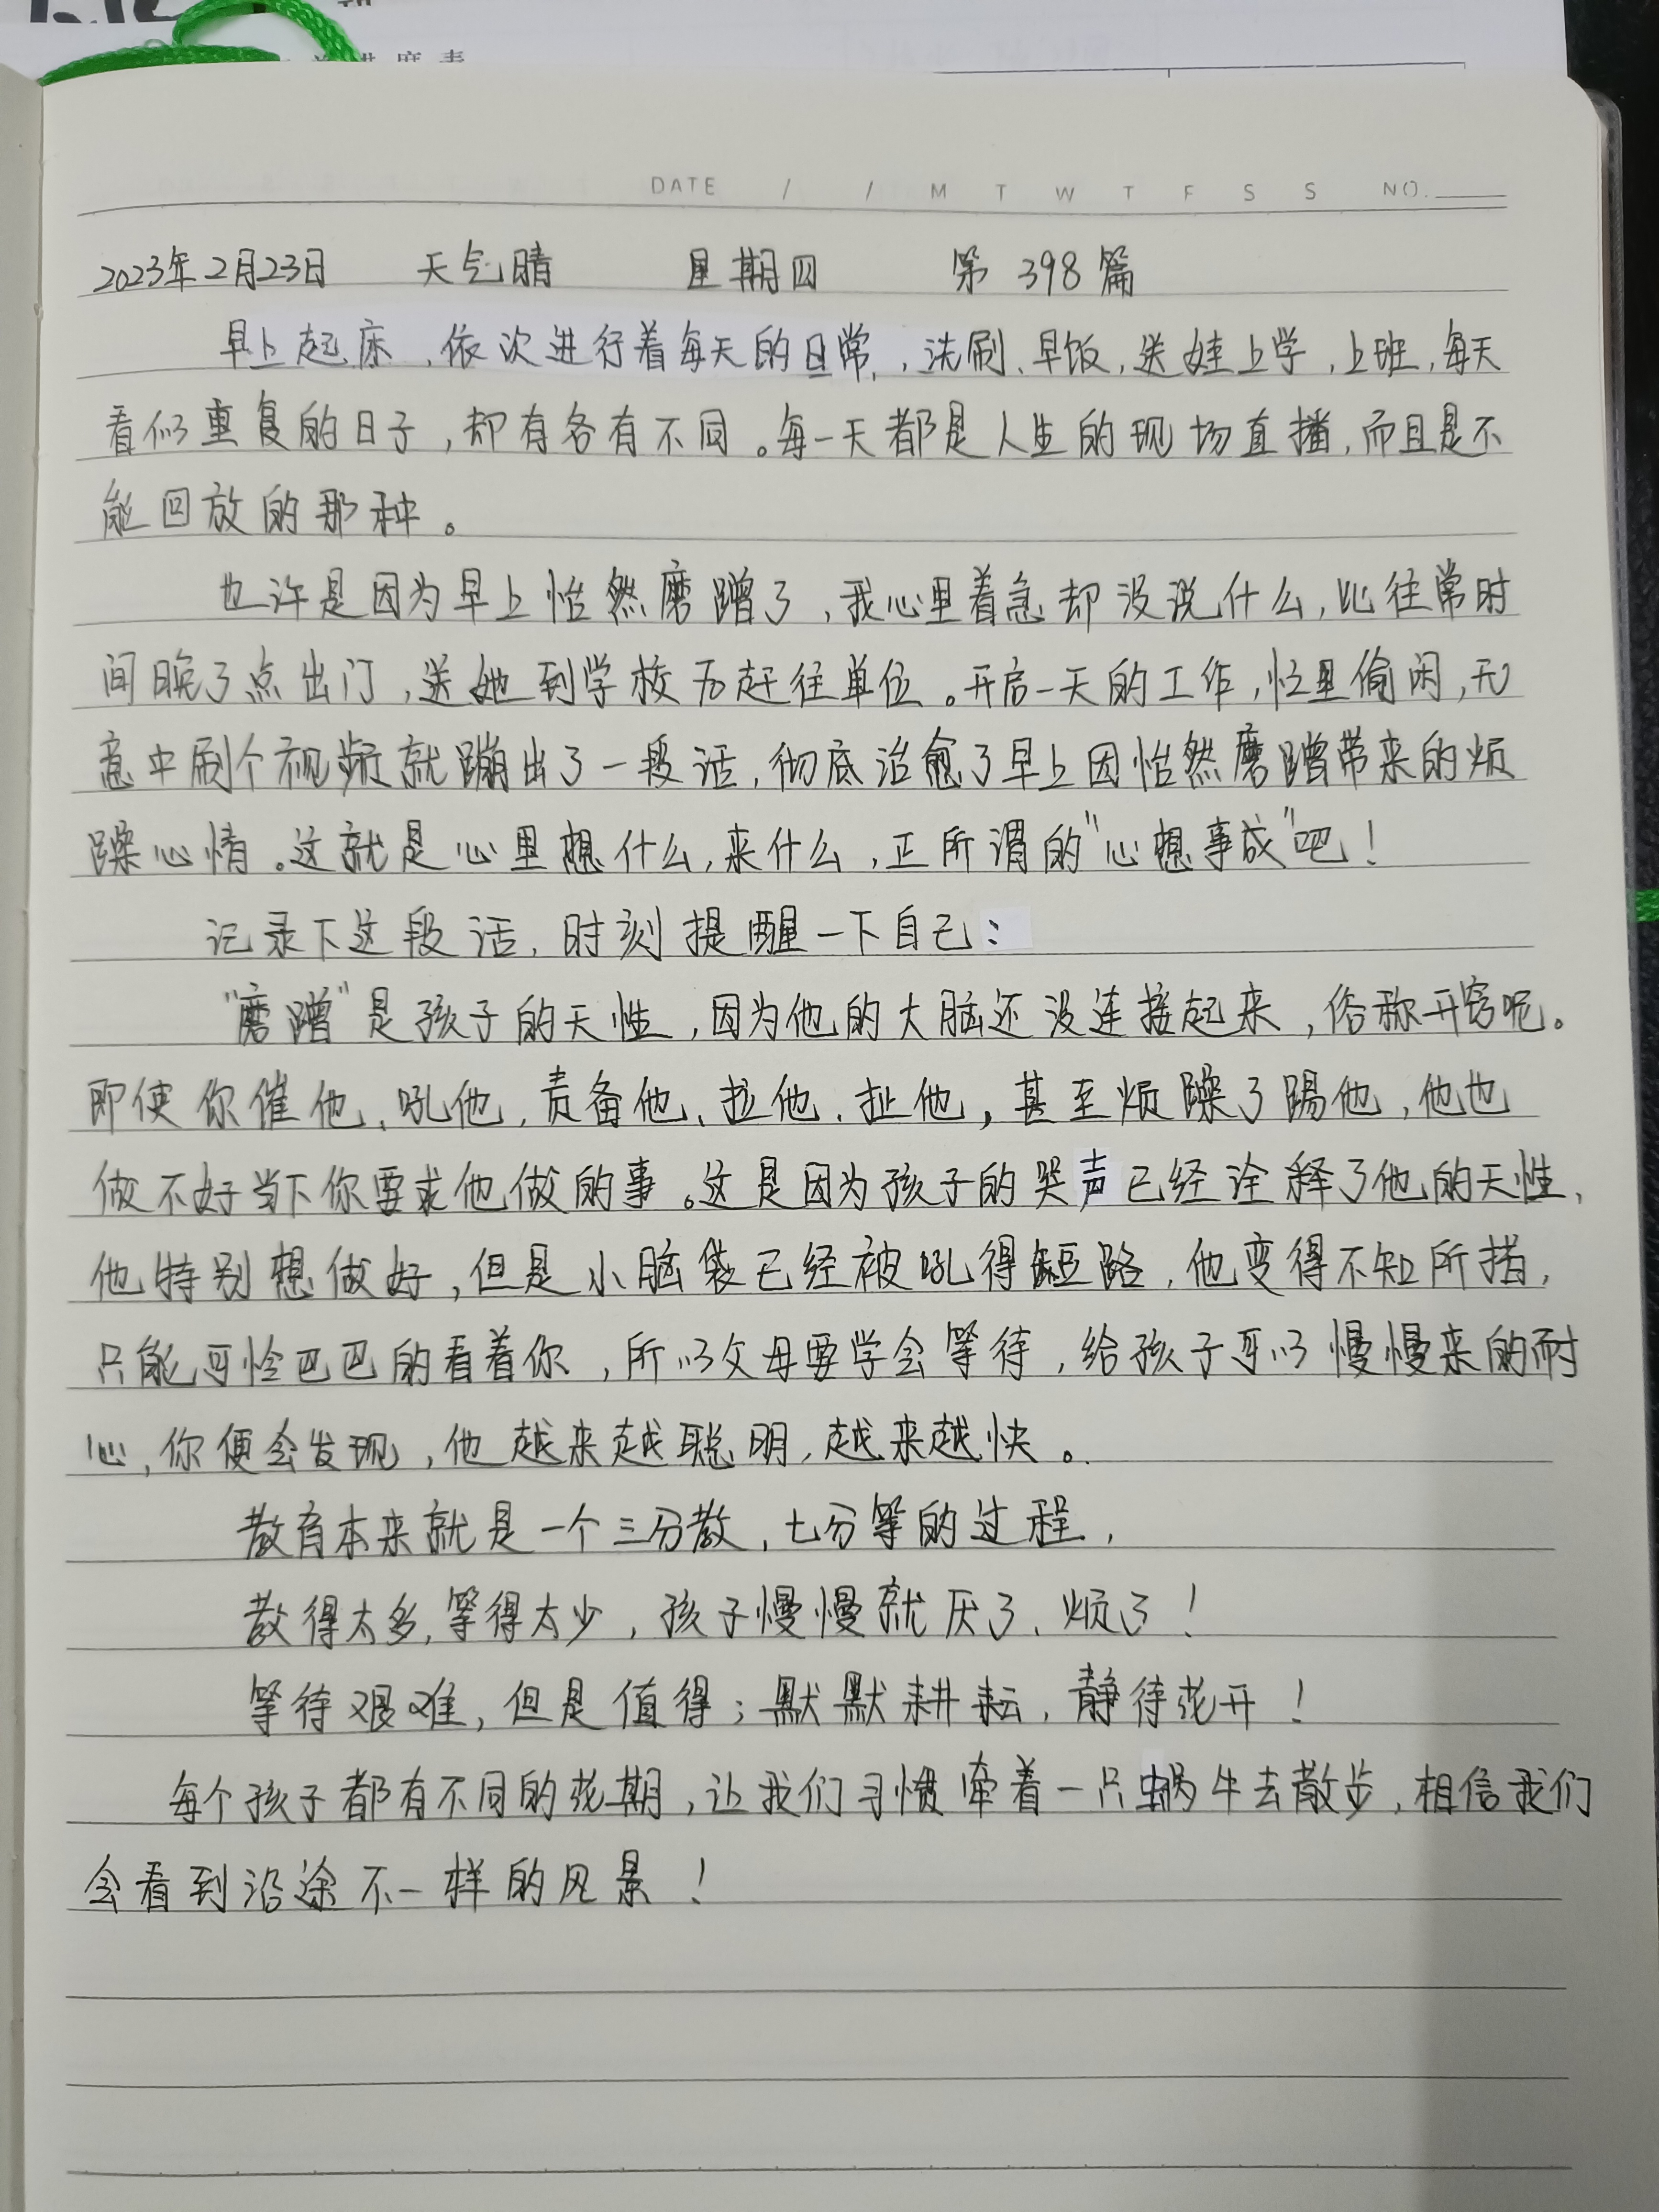 DATE / / M T W T F S S NO.
2023年2月23日 天气晴 星期四 第398篇
早上起床,依次进行着每天的日常,洗刷、早饭,送娃上学,上班,每天
看似重复的日子,却有各有不同。每一天都是人生的现场直播,而且是不
能回放的那种。
也许是因为早上怡然磨蹭了,我心里着急却没说什么,比往常时
间晚了点出门,送她到学校后赶往单位。开启一天的工作,忙里偷闲,无
意中刷个视频就蹦出了一段话,彻底治愈了早上因怡然磨蹭带来的烦
躁心情。这就是心里想什么,来什么,正所谓的"心想事成"吧!
记录下这段话,时刻提醒一下自己:
"磨蹭"是孩子的天性,因为他的大脑还没连接起来,俗称开窍呢。
即使你催他、吼他,责备他、拉他、扯他,甚至烦躁了踢他,他也
做不好当下你要求他做的事。这是因为孩子的哭声已经诠释了他的天性,
他特别想做好,但是小脑袋已经被吼得短路,他变得不知所措,
只能可怜巴巴的看着你,所以父母要学会等待,给孩子可以慢慢来的耐
心,你便会发现,他越来越聪明,越来越快。
教育本来就是一个三分教,七分等的过程,
教得太多,等得太少,孩子慢慢就厌了、烦了!
等待艰难,但是值得;默默耕耘,静待花开!
每个孩子都有不同的花期,让我们习惯牵着一只蜗牛去散步,相信我们
会看到沿途不一样的风景!